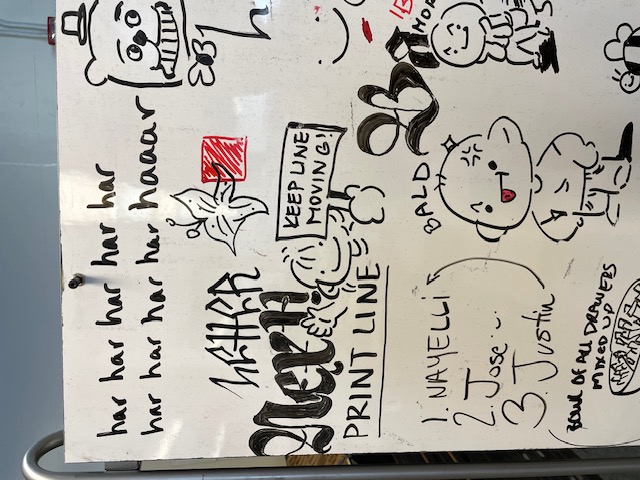 har har har har har
har har har har haaaar
LETTER
Next!
KEEP LINE
MOVING!
PRINT LINE
BALD
1. NAYELLI
2. Jose
3. Justin
BOWL OF ALL DRAWERS
MIXED UP